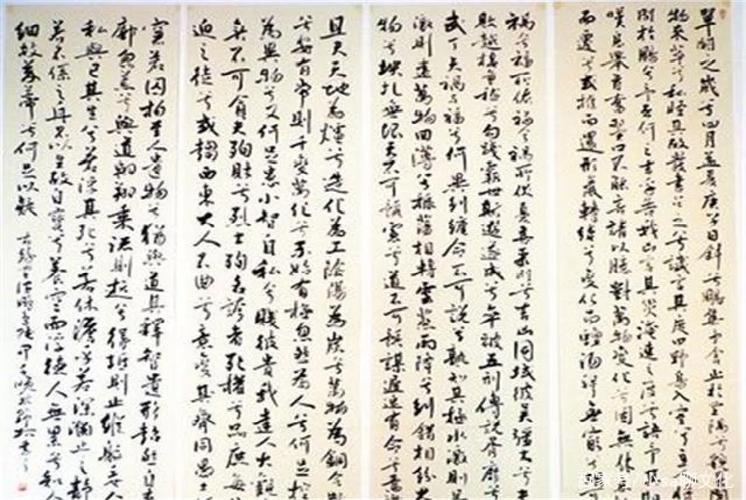 單閼之歲兮四月孟夏庚子日斜兮鵩集予舍止于坐隅兮貌甚閒
物來萃兮私怪其故發書占之兮讖言其度曰野鳥入室兮主
問於鵩兮予去何之吉乎告我凶言其災淹速之度兮語予其
嘆息舉首奮翼口不能言請以臆對萬物變化兮固無休
而遷兮或推而還形氣轉續兮變化而蟺沕穆無窮兮
禍兮福所倚福兮禍所伏憂喜聚門兮吉凶同域彼吳強大兮
敗越棲會稽兮勾踐霸世斯遊遂成兮卒被五刑傅說胥靡兮
武丁夫禍與福兮何異糾纆命不可說兮孰知其極水激則旱
激則遠萬物回薄兮振蕩相轉雲蒸雨降兮糾錯相紛大
物兮坱圠無垠天不可預慮兮道不可預謀遲速有命兮焉
且夫天地為爐兮造化為工陰陽為炭兮萬物為銅合散
兮安有常則千變萬化兮未始有極忽然為人兮何足控
為異物兮又何足患小智自私兮賤彼貴我達人大觀
無不可貪夫殉財兮烈士殉名夸者死權兮品庶每
迫之徒兮或趨西東大人不曲兮意變齊同愚士
窘若囚拘至人遺物兮獨與道俱釋智遺形兮超然自
廓忽荒兮與道翱翔乘流則逝兮得坻則止縱軀委
私與己其生兮若浮其死兮若休澹乎若深淵止之靜
若不係之舟不以生故自寶兮養空而浮德人無累兮知
細故蒂芥兮何足以疑